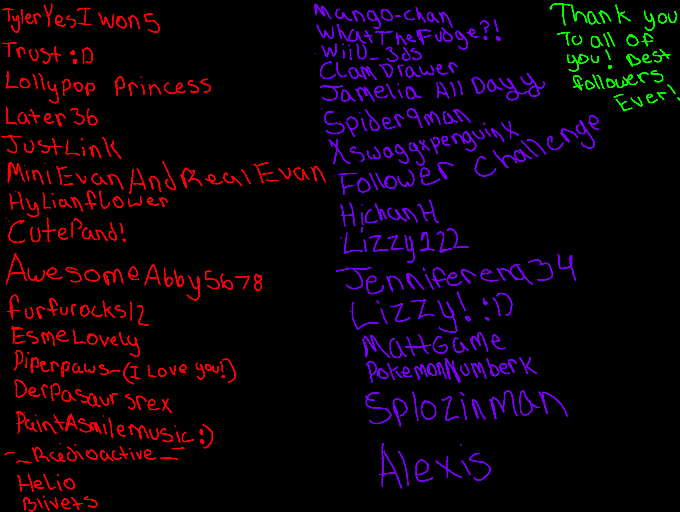 TylerYesIwon5
Trust :D
Lollypop Princess
Later36
JustLink
MiniEvanAndRealEvan
Hylianflower
CutePand!
AwesomeAbby5678
furfurocks12
EsmeLovely
Piperpaws-(I Love you!)
Derpasaursrex
PaintAsmilemusic:)
-_Radioactive_-
Helio
Blivets
Mango-chan
WhatTheFudge?!
WiiU_3ds
ClamDrawer
Jamelia All Dayy
Spider9man
XswaggxpenguinX
Follower Challenge
HichanH
Lizzy222
Jenniferena34
Lizzy! :D
MattGame
PokemonNumberK
SplozinMan
Alexis
Thank you
To all of
you! Best
followers
Ever!